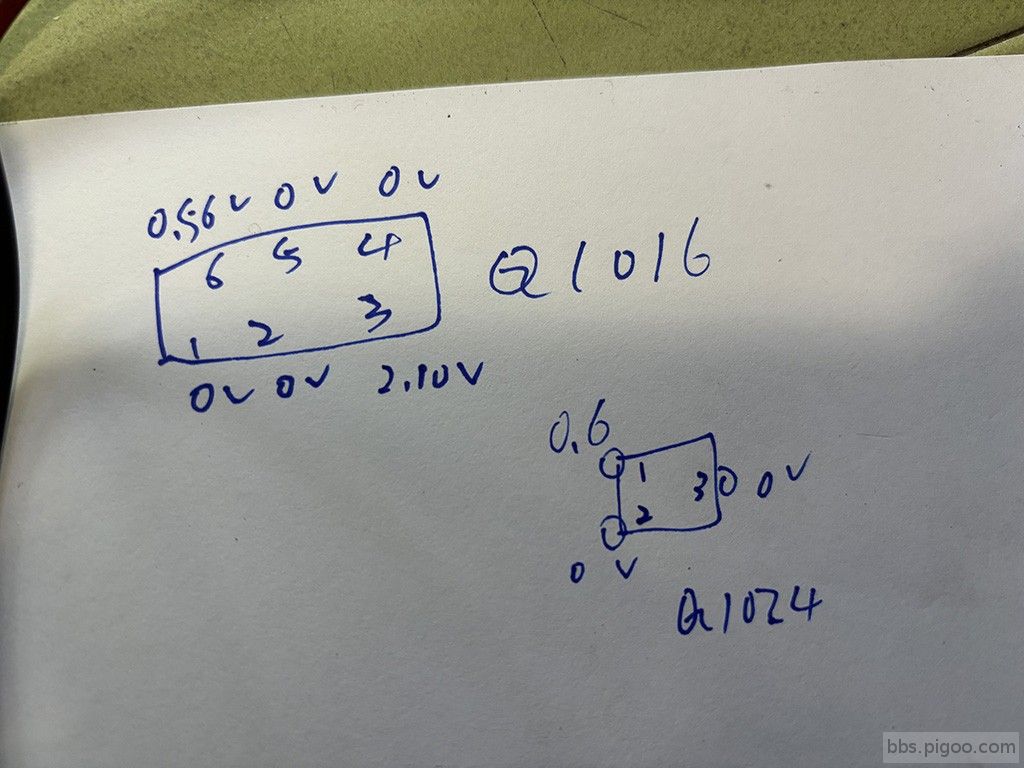 0.56V 0V 0V
6 5 4
Q1016
1 2 3
0V 0V 2.10V
0.6
1
3 0V
2
0V
Q1024
bbs.pigoo.com